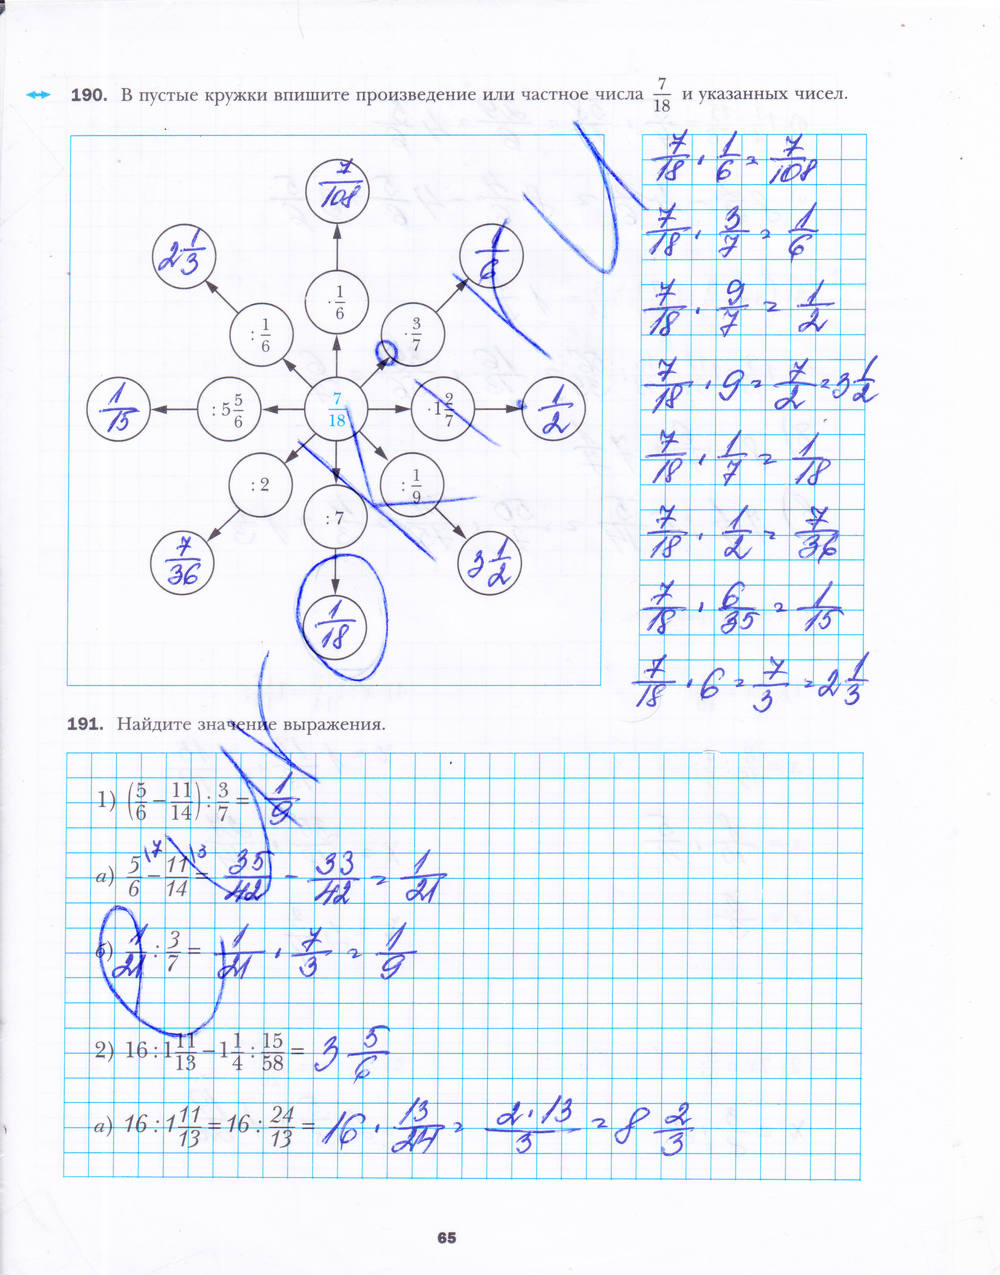 190. В пустые кружки впишите произведение или частное числа 7/18 и указанных чисел.
7/108
2 1/3
1/6
· 1/6
: 1/6
· 3/7
1/15
: 5 5/6
7/18
· 1 2/7
1/2
: 2
: 1/9
: 7
7/36
3 1/2
1/18
7/18 · 1/6 = 7/108
7/18 · 3/7 = 1/6
7/18 · 9/7 = 1/2
7/18 · 9 = 7/2 = 3 1/2
7/18 · 1/7 = 1/18
7/18 · 1/2 = 7/36
7/18 · 6/35 = 1/15
7/18 · 6 = 7/3 = 2 1/3
191. Найдите значение выражения.
1) (5/6 − 11/14) : 3/7 = 1/9
а) 5/6 \7 − 11/14 \3 = 35/42 − 33/42 = 1/21
б) 1/21 : 3/7 = 1/21 · 7/3 = 1/9
2) 16 : 1 11/13 − 1 1/4 : 15/58 = 3 5/6
а) 16 : 1 11/13 = 16 : 24/13 = 16 · 13/24 = 2·13/3 = 8 2/3
65